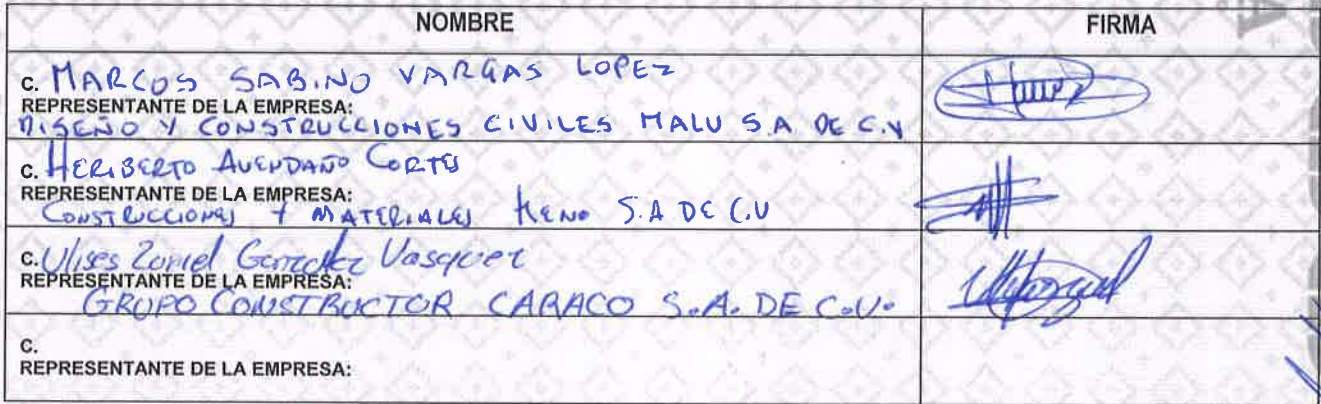 NOMBRE FIRMA
C. MARCOS SABINO VARGAS LOPEZ
REPRESENTANTE DE LA EMPRESA:
DISEÑO Y CONSTRUCCIONES CIVILES MALU S.A DE C.V
C. HERIBERTO AVENDAÑO CORTES
REPRESENTANTE DE LA EMPRESA:
CONSTRUCCIONES Y MATERIALES KENO S.A DE C.V
C. Ulises Zuriel González Vasquez
REPRESENTANTE DE LA EMPRESA:
GRUPO CONSTRUCTOR CARACO S.A. DE C.V.
C.
REPRESENTANTE DE LA EMPRESA: